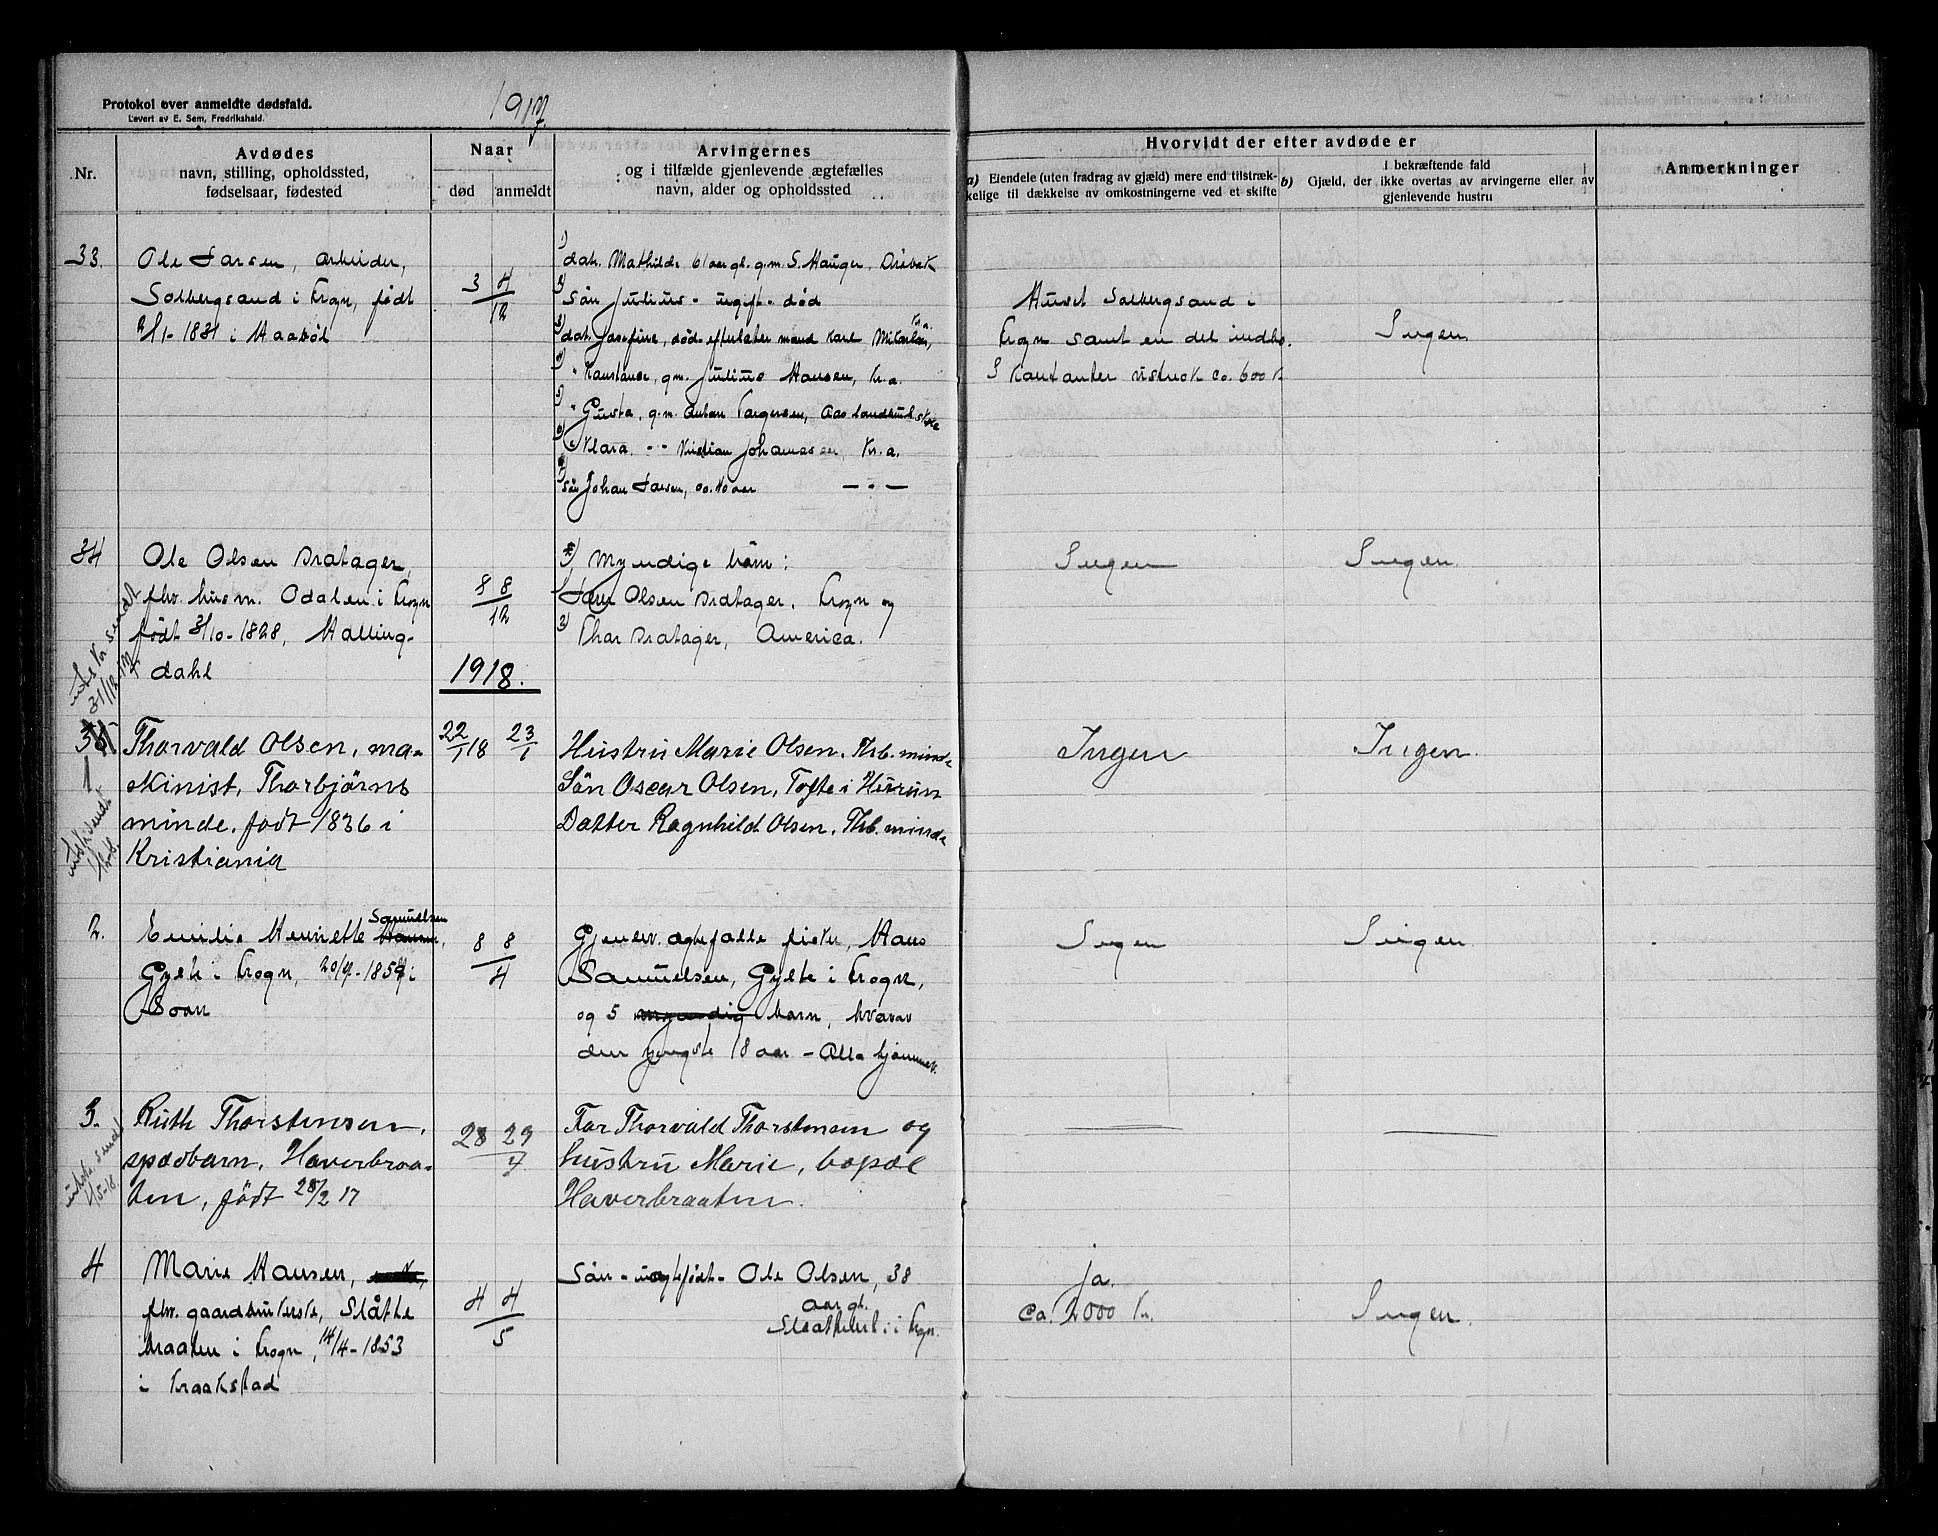 Protokol over anmeldte dødsfald.
Levert av E. Sem, Fredrikshald.
1917
Nr.
Avdødes
navn, stilling, opholdssted,
fødselsaar, fødested
Naar
død
anmeldt
Arvingernes
og i tilfælde gjenlevende ægtefælles
navn, alder og opholdssted
Hvorvidt der efter avdøde er
a) Eiendele (uten fradrag av gjæld) mere end tilstræk-
kelige til dækkelse av omkostningerne ved et skifte
i bekræftende fald
b) Gjæld, der ikke overtas av arvingerne eller av
gjenlevende hustru
Anmerkninger
33.
Ole Larsen, arbeider,
Solbergsand i Frogn, født
1831 i Haabøl
3 4
12
1) dat. Mathilde 61 aar gl. g.m. S. Hauger, Drøbak
2) søn Julius - ugift - død
3) dat. Josefine, død - efterlater mand Karl Mikalsen, Kr.a.
4) " Konstanse, g.m. Julius Hansen, Kr.a.
5) " Gusta, g.m. Anton Torgersen, Aas landbruksskole
6) " Klara - " - Kristian Johannesen, Kr.a.
7) søn Johan Larsen, 40 aar — " —
Huset Solbergsand i
Frogn samt en del indbo.
I kontanter ca. 600 k
Ingen
34
Ole Olsen Bratager,
fhv. husm. Odalen i Frogn
født 3/10-1828, Halling-
dahl
8 8
12
myndige børn:
1) Lars Olsen Bratager, Frogn og
2) Thor Bratager, America.
Ingen
Ingen
31/12 17
1918.
1
Thorvald Olsen, ma-
skinist, Thorbjørns
minde. født 1836 i
Kristiania
22/1 18
23/1
Hustru Marie Olsen, Thb. minde
Søn Oscar Olsen, Tofte i Hurum
Datter Ragnhild Olsen, Thb. minde
Ingen
Ingen.
2.
Emilie Henriette Samuelsen,
Gylte i Frogn, i
Soon
8 8
4
Gjenlev. ægtefælle fisker, Hans
Samuelsen, Gylte i Frogn,
og 5 myndig barn, hvorav
den yngste 18 aar - Alle hjemmev.
Ingen
Ingen
3.
Ruth Thorstensen,
spædbarn, Haverbraa-
ten, født 28/2 17
28 29
4
Far Thorvald Thorstensen og
hustru Marie, bopæl
Haverbraaten.
4
Marie Hansen,
fhv. gaardbrukerske, Slåtte
braaten i Frogn, 14/4-1853
i Kraakstad
4 4
5
Søn - uægtefødt - Ole Olsen, 38
aar gl.
i Frgn.
ja.
ca. 2000 kr.
Ingen.